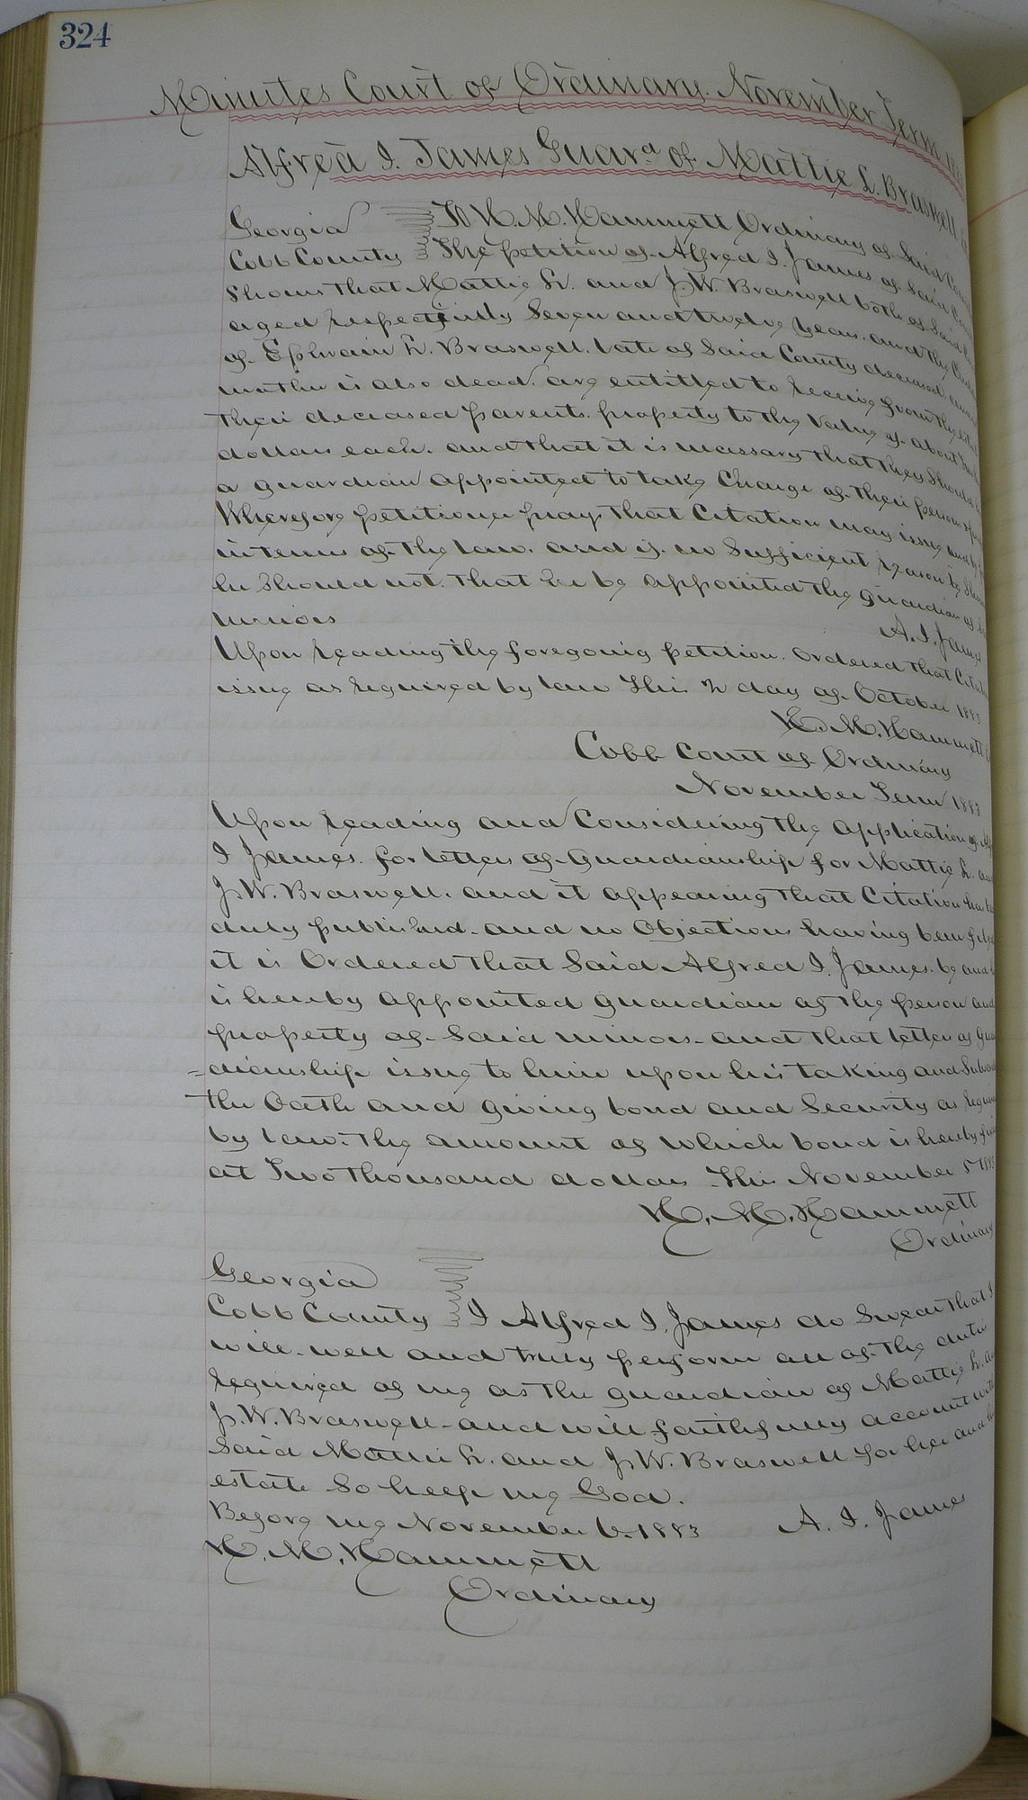 324
Minutes Court of Ordinary November Term
Alfred I. James Guard of Mattie L. Braswell
Georgia To H. M. Hammett Ordinary of Said
Cobb County The petition of Alfred I. James of Said
Shows that Mattie L. and J. W. Braswell both of Said
aged respectively Seven and twelve years. and the
of Ephraim L. Braswell. late of Said County deceased
mother is also dead. are entitled to receive from the
their deceased parents. property to the value of about
dollars each. and that it is necessary that they Should
a guardian appointed to take Charge of their person
Wherefore petitioner prays that Citation may issue
in terms of the law. and if no Sufficient reason be
he Should not. that he be appointed the guardian of
minors
A. I. James
Upon reading the foregoing petition. Ordered that
issue as required by law This 2 day of October 1883
H. M. Hammett
Cobb Court of Ordinary
November Term 1883
Upon reading and Considering the application of
I James. for letters of Guardianship for Mattie L. and
J. W. Braswell. and it appearing that Citation has
duly published. and no Objections having been filed
it is Ordered that Said Alfred I. James. be and
is hereby appointed guardian of the person and
property of Said minors. and that letters of
=dianship issue to him upon his taking and
the Oath and giving bond and Security as
by law. the amount of which bond is hereby
at Two thousand dollars This November 5
H. M. Hammett
Ordinary
Georgia
Cobb County I Alfred I. James do Swear that I
will well and truly perform all of the duties
required of me as the guardian of Mattie L. and
J. W. Braswell and will faithfully account with
Said Mattie L. and J. W. Braswell for her and
estate So help me God.
Before me November 6. 1883 A. I. James
H. M. Hammett
Ordinary